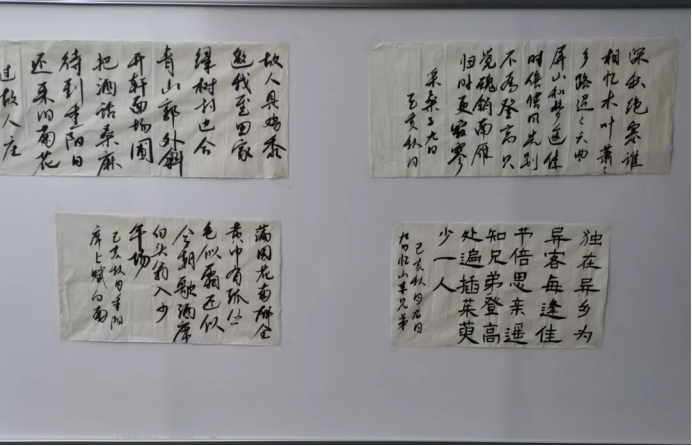 故人具鸡黍
邀我至田家
绿树村边合
青山郭外斜
开轩面场圃
把酒话桑麻
待到重阳日
还来就菊花
过故人庄
深秋绝塞谁
相忆木叶萧々
乡路迢々六曲
屏山和梦遥佳
时倍惜风光别
不为登高只
觉魂销南雁
归时更寂寥
采桑子九日
己亥秋月
满园花菊郁金
黄中有孤丛
色似霜还似
今朝歌酒席
白头翁入少
年场
己亥秋月重阳
席上赋白菊
独在异乡为
异客每逢佳
节倍思亲遥
知兄弟登高
处遍插茱萸
少一人
己亥秋月九日
忆山东兄弟